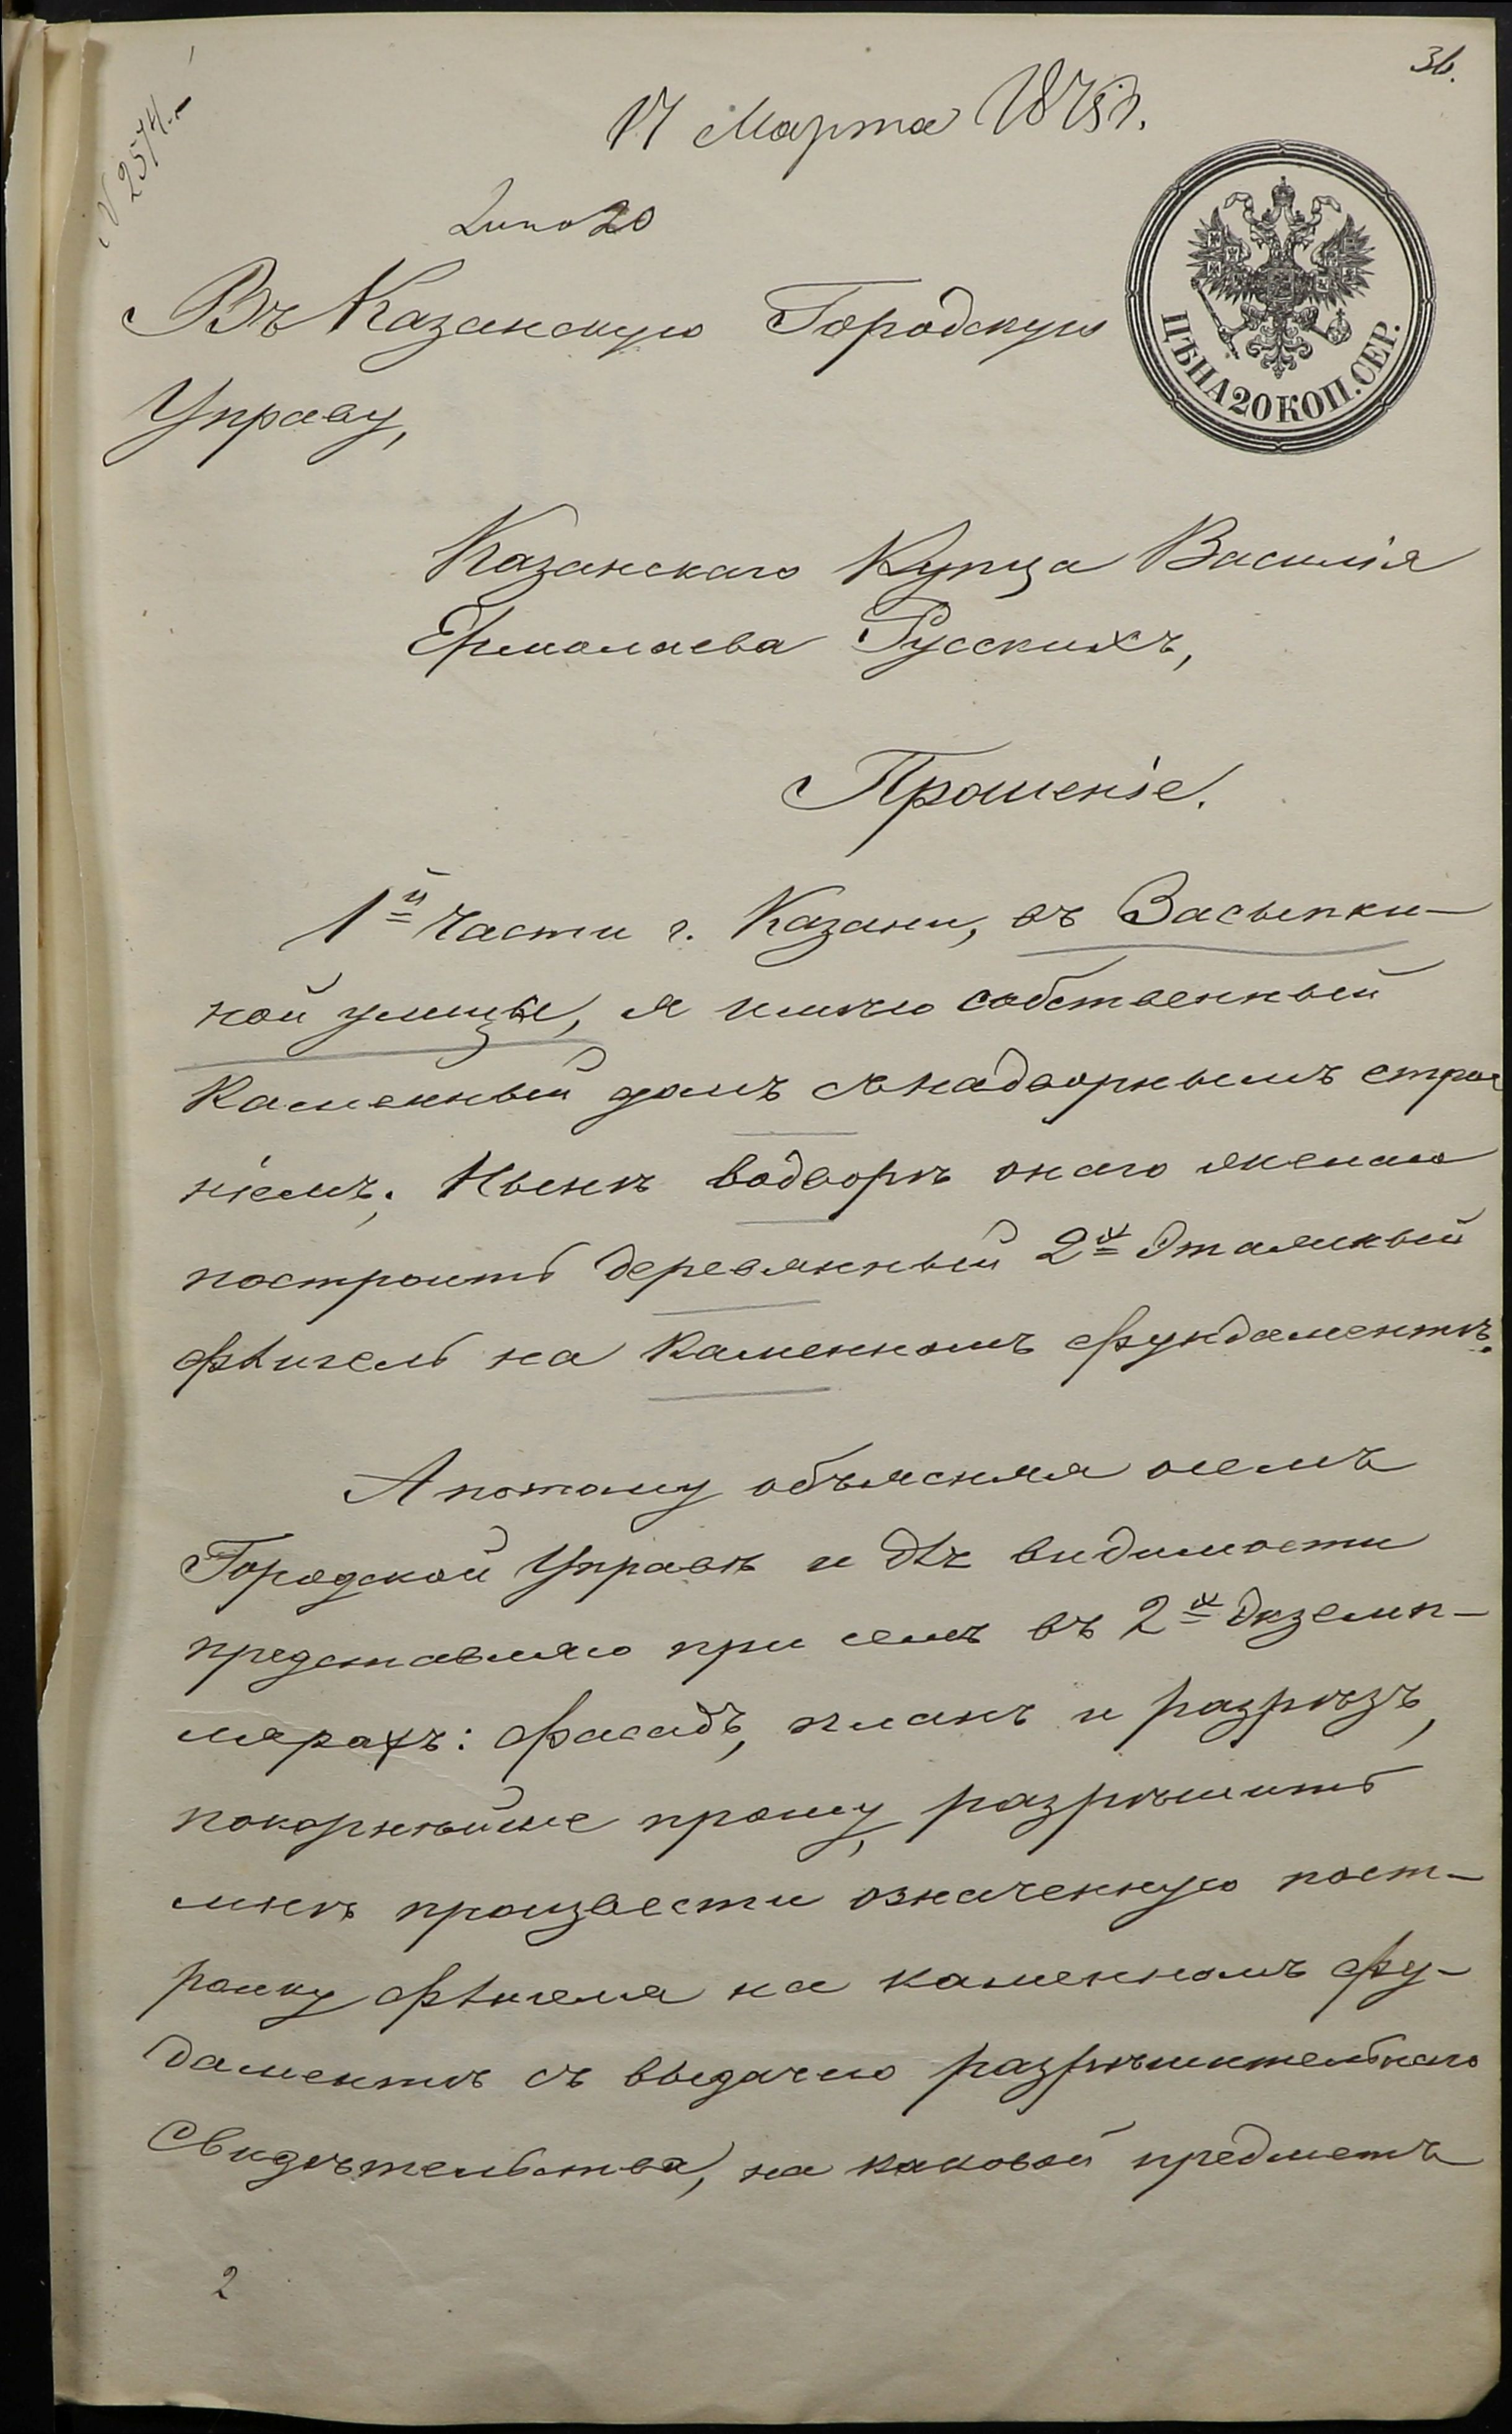 36.
N 2574.
17 Марта 1875 г.
20
Въ Казанскую Городскую
Управу,
ЦѢНА 20 КОП. СЕР.
Казанскаго Купца Василія
Ермолаева Русскихъ,
Прошеніе.
1й Части г. Казани, въ Засыпки-
ной улицѣ, я имѣю собственный
Каменный домъ съ надворнымъ строе
ніемъ. Нынѣ во дворѣ онаго желаю
построить деревянный 2х этажный
флигель на Каменномъ фундаментѣ.
А потому объясняя о семъ
Городской Управѣ и для видимости
представляю при семъ въ 2х экземп-
лярахъ: фасадъ, планъ и разрѣзъ,
покорнѣйше прошу, разрѣшить
мнѣ произвести означенную пост-
ройку флигеля на каменномъ фу-
даментѣ съ выдачею разрѣшительнаго
Свидѣтельства, на каковой предметъ
2